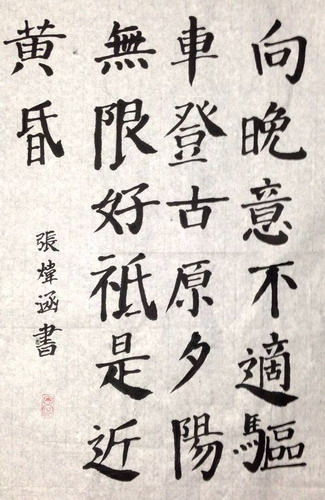 向晚意不適驅
車登古原夕陽
無限好祗是近
黄昏
張煒涵書